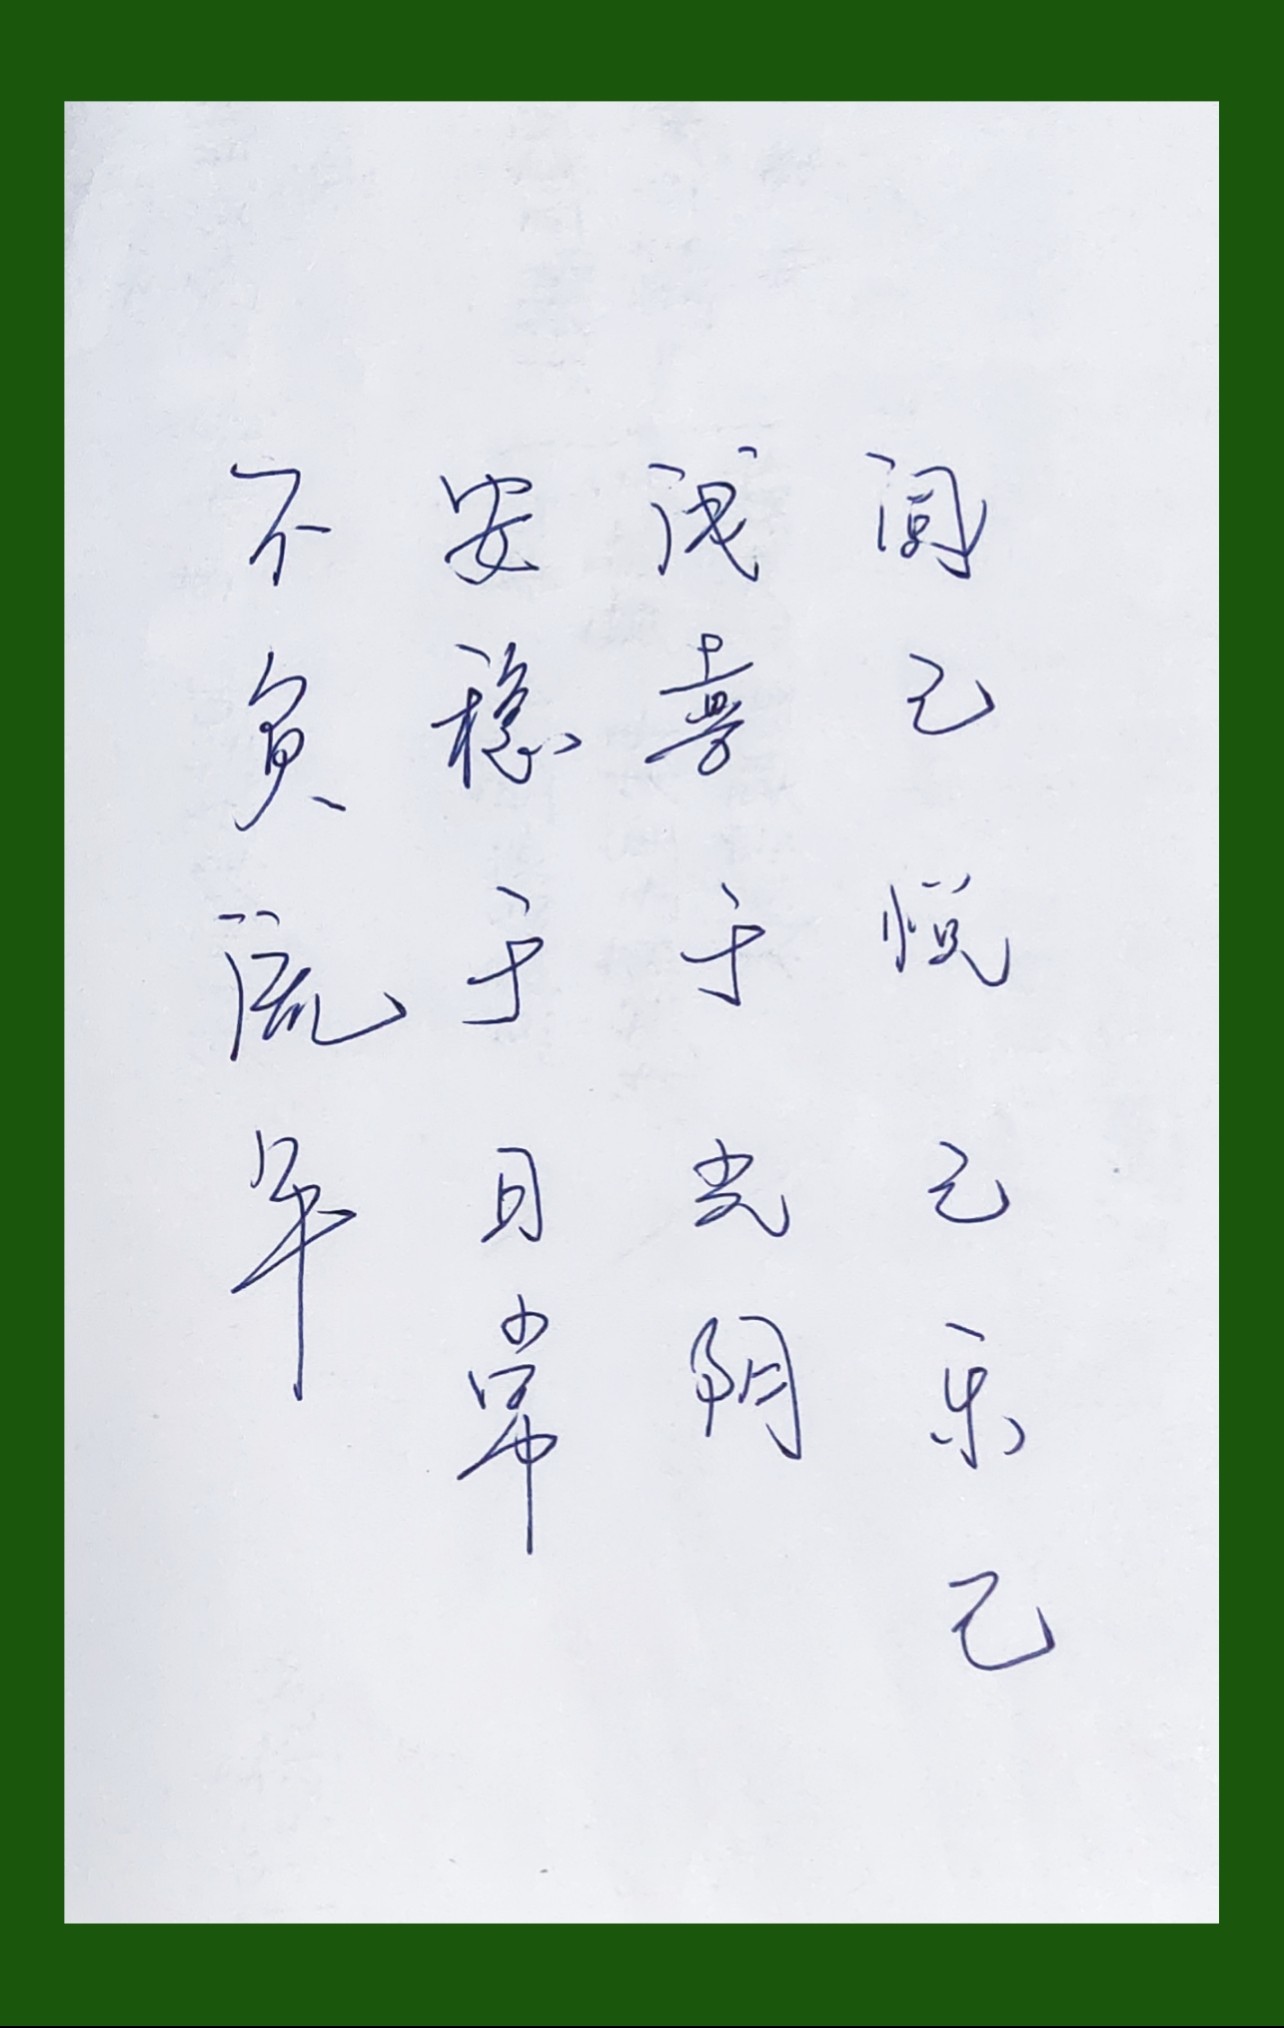 阅己悦己乐己
浅喜于光阴
安稳于日常
不负流年